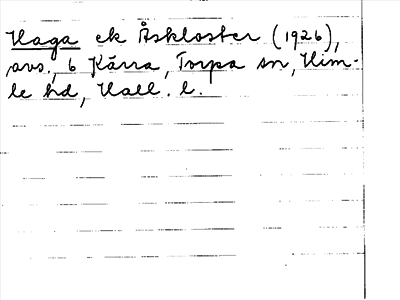 Haga ek Åskloster (1926),
avs., 6 Kärra, Torpa sn, Him-
le hd, Hall. l.